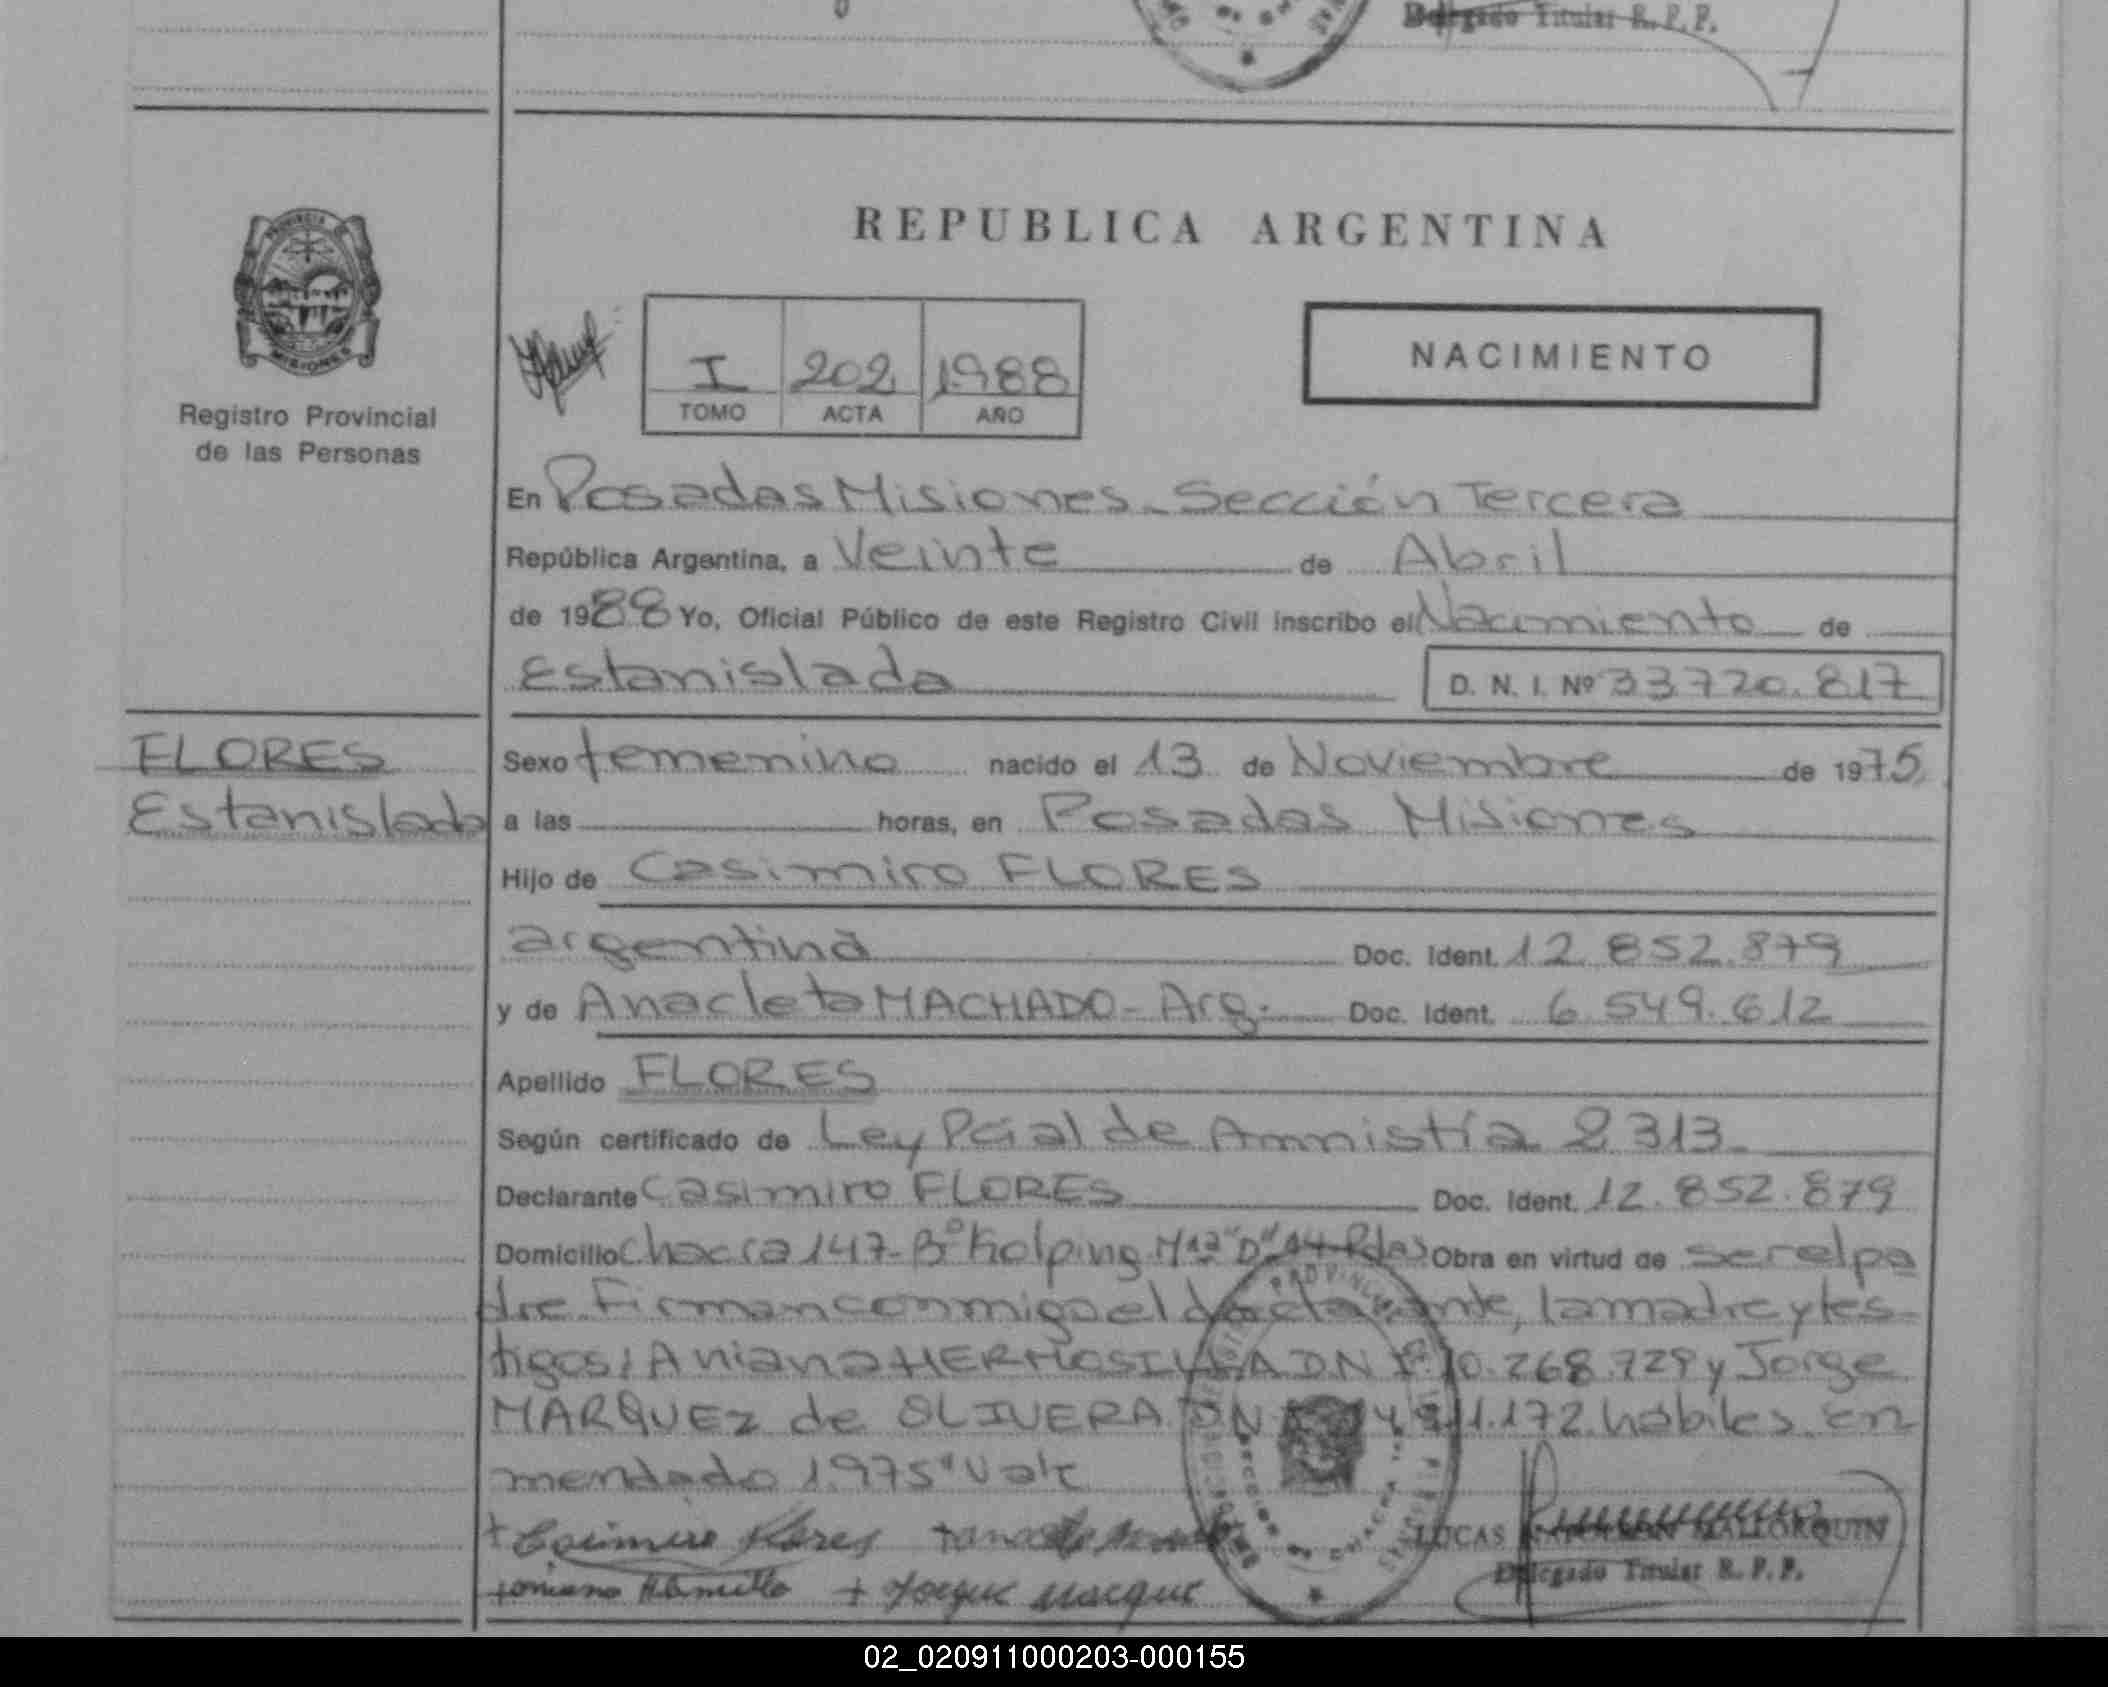 Delegado Titular R. P. P.
REPUBLICA ARGENTINA
PROVINCIA DE
MISIONES
Registro Provincial
de las Personas
I 202 1988
TOMO ACTA AÑO
NACIMIENTO
En Posadas Misiones - Sección Tercera
República Argentina, a Veinte de Abril
de 1988 Yo, Oficial Público de este Registro Civil inscribo el Nacimiento de
Estanislada D. N. I. Nº 33720.817
FLORES
Estanislada
Sexo femenino nacido el 13 de Noviembre de 1975
a las horas, en Posadas Misiones
Hijo de Casimiro FLORES
argentina Doc. Ident. 12.852.879
y de Anacleta MACHADO - Arg. Doc. Ident. 6.549.612
Apellido FLORES
Según certificado de Ley Pcial de Amnistía 2313
Declarante Casimiro FLORES Doc. Ident. 12.852.879
Domicilio Chacra 147- Bº Kolping Mza "D" 14 Pdas Obra en virtud de ser el pa
dre Firman conmigo el declarante, la madre y tes-
tigos: Aniana HERMOSILLA DNI 10.268.729 y Jorge
MARQUEZ de OLIVERA DN 11.172 habiles en
mendado 1.975" Vale
+ Casimiro Flores
+ Jorgue marque
LUCAS MALLORQUIN
Delegado Titular R. P. P.
02_020911000203-000155